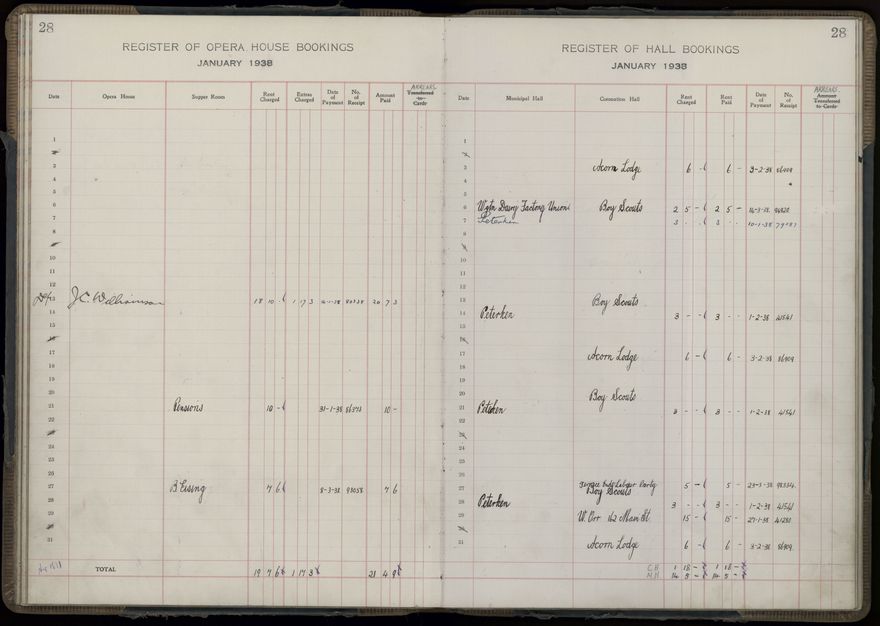 28
REGISTER OF OPERA HOUSE BOOKINGS
JANUARY 1938
Date Opera House Supper Room Rent Charged Extras Charged Date of Payment No. of Receipt Amount Paid ARREARS. Transferred to Cards
1
2
3
4
5
6
7
8
9
10
11
12
13 J.C. Williamson 18 10 - 1 17 3 20 7 3
14
15
16
17
18
19
20
21 Pensions 10 - 31-1-38 10 -
22
23
24
25
26
27 B. Essing 7 6 8-3-38 93058 7 6
28
29
30
31
TOTAL 19 7 6 1 17 3 21 4 9
28
REGISTER OF HALL BOOKINGS
JANUARY 1938
Date Municipal Hall Coronation Hall Rent Charged Rent Paid Date of Payment No. of Receipt ARREARS. Amount Transferred to Cards
1
2
3 Acorn Lodge 6 - 6 - 3-2-38 86909
4
5
6 Wgtn Dairy Factory Union Boy Scouts 2 5 - 2 5 -
7 Peterken 3 3 10-1-38
8
9
10
11
12
13 Boy Scouts
14 Peterken 3 - - 3 - - 1-2-38 41541
15
16
17 Acorn Lodge 6 - 6 - 3-2-38 86909
18
19
20 Boy Scouts
21 Peterken 3 - - 3 - - 1-2-38 41541
22
23
24
25
26
27 Boy Scouts 5 - 5 -
28 Peterken 3 - - 3 - - 1-2-38 41541
29 W. Orr 162 Main St. 15 - 15 - 27-1-38
30
31 Acorn Lodge 6 - 6 - 3-2-38 86909
C.H. 1 18 - 1 18 -
M.H. 14 5 - 14 5 -